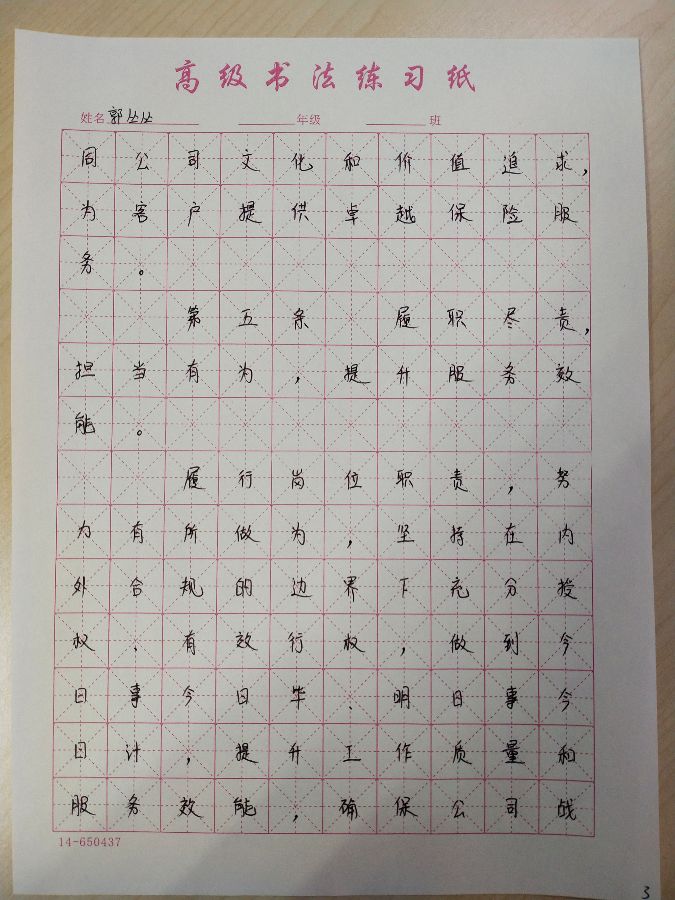 高级书法练习纸
姓名 郭丛丛 年级 班
同公司文化和价值追求,
为客户提供卓越保险服
务。
第五条 履职尽责,
担当有为,提升服务效
能。
履行岗位职责,努
力有所做为,坚持在内
外合规的边界下充分授
权、有效行权,做到今
日事今日毕、明日事今
日计,提升工作质量和
服务效能,确保公司战
14-650437
3